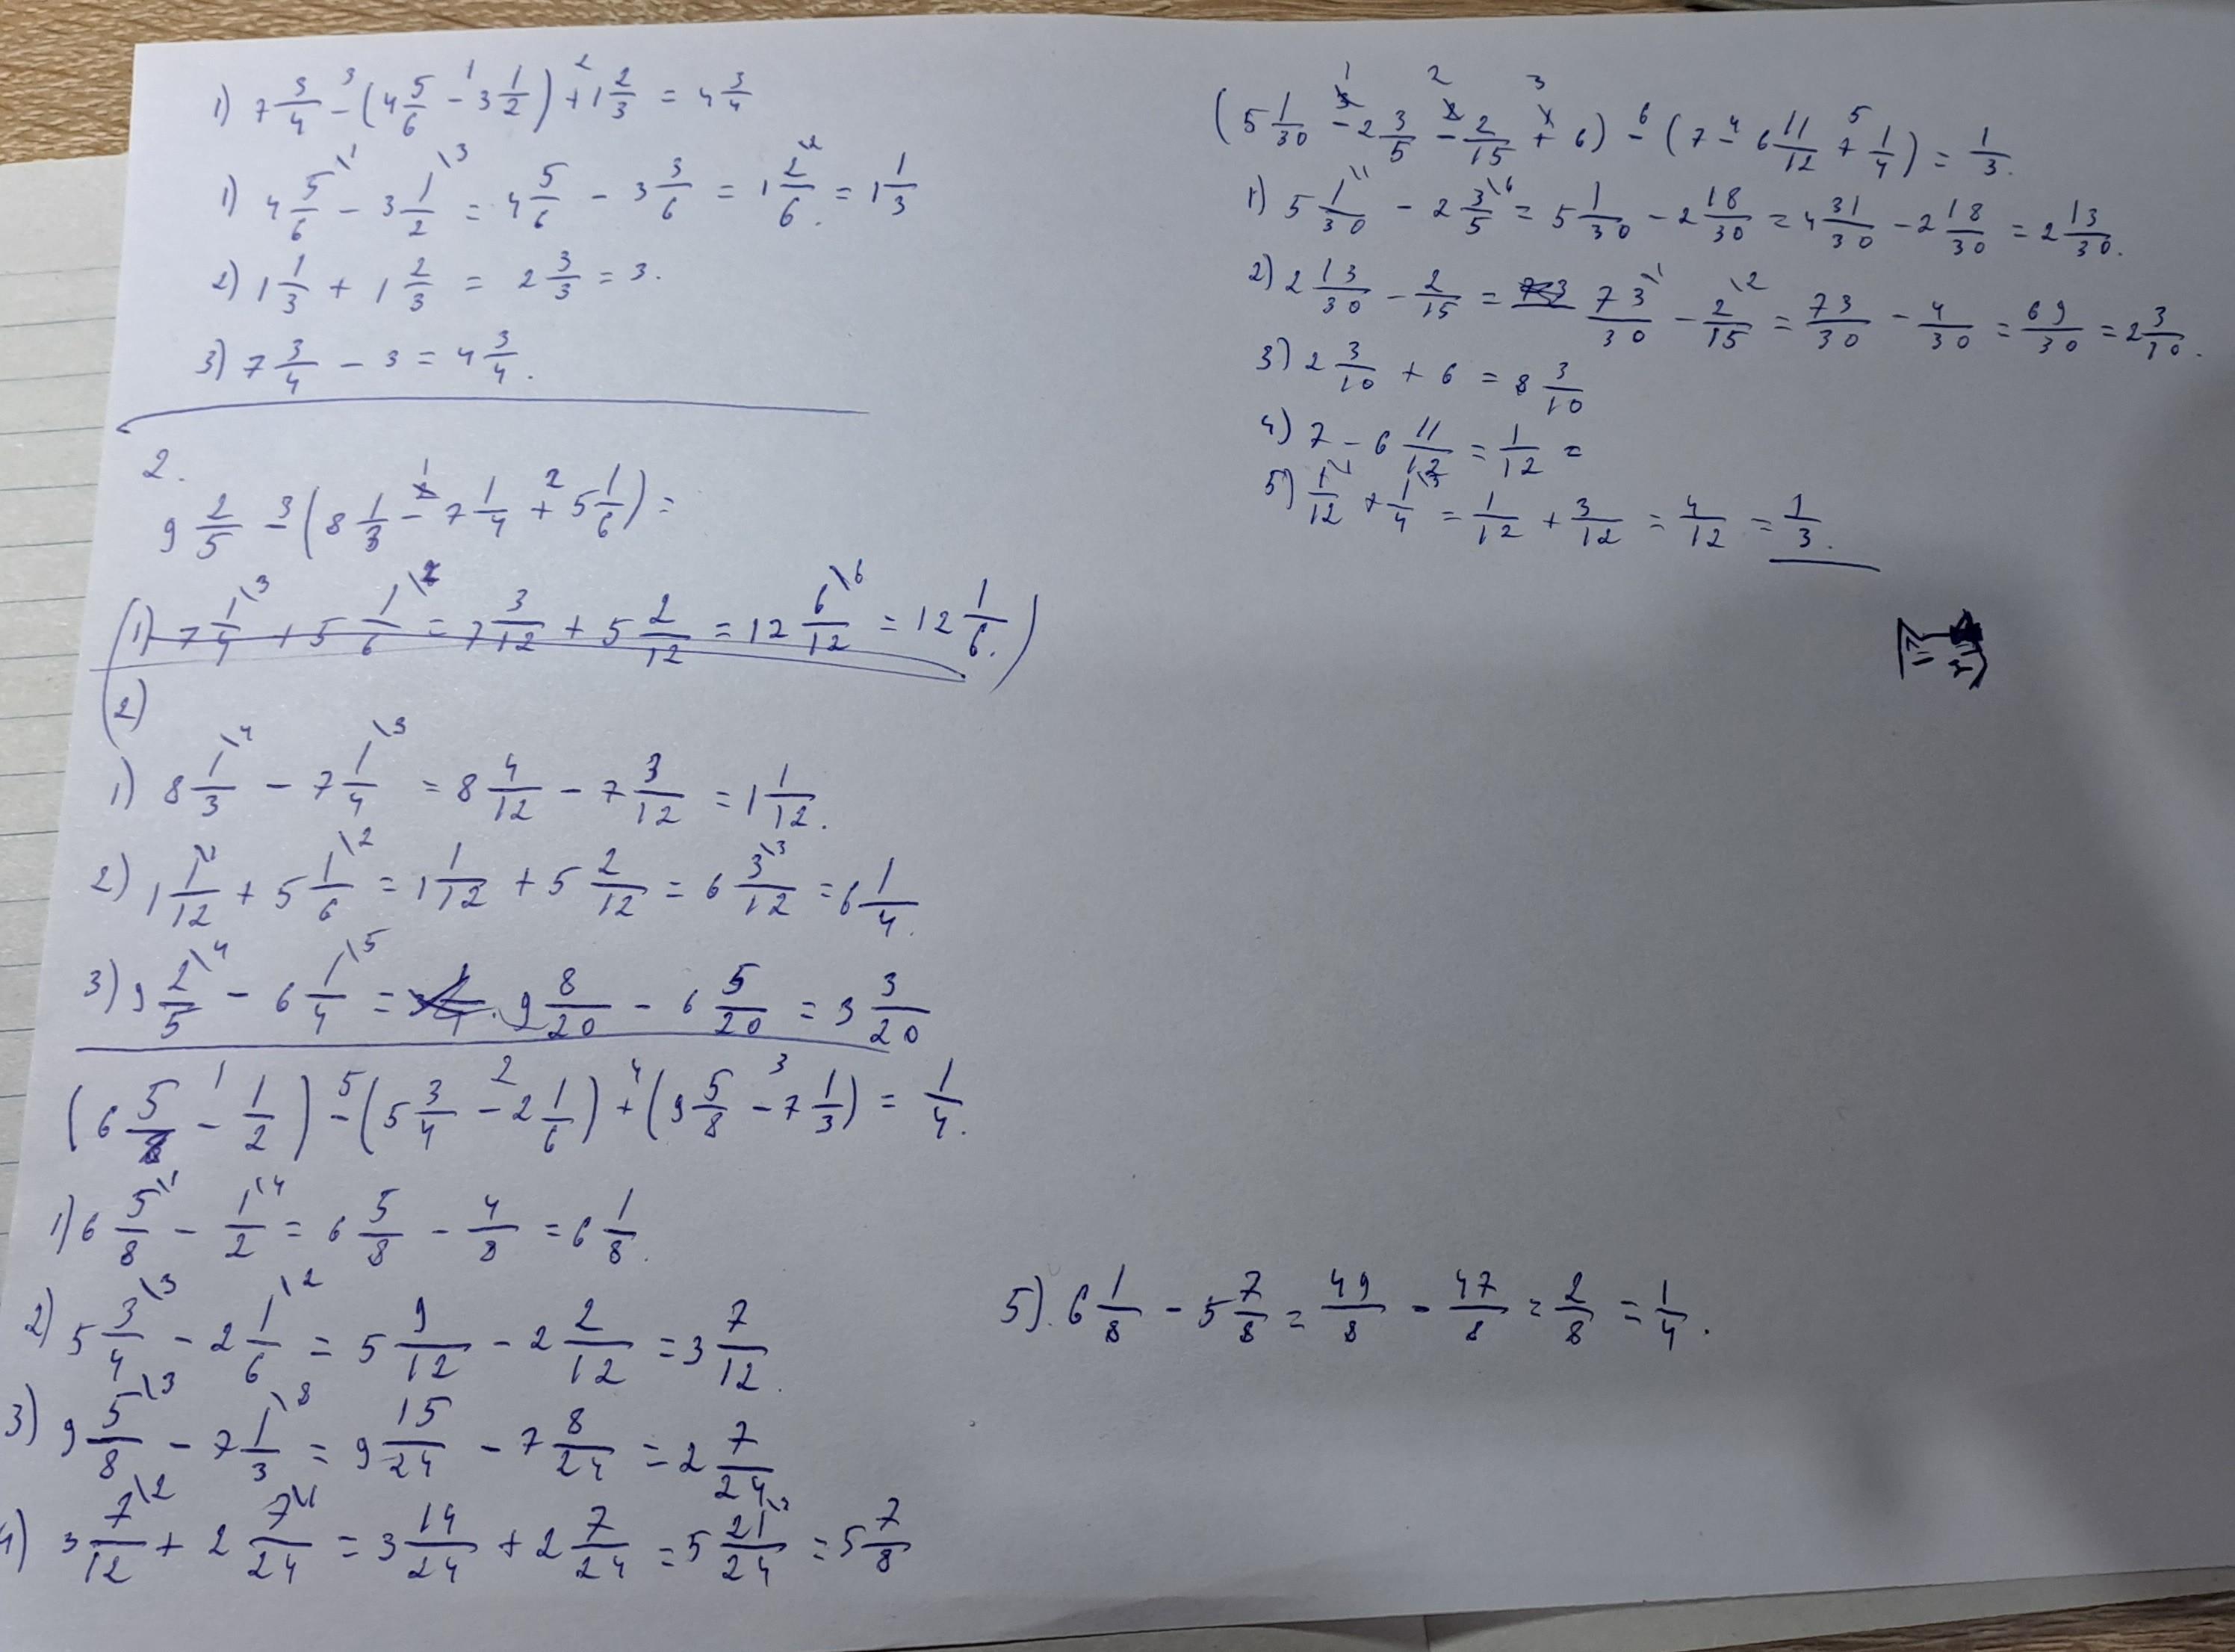 1) 7 3/4 - (4 5/6 - 3 1/2) + 1 2/3 = 4 3/4
1) 4 5/6 - 3 1/2 = 4 5/6 - 3 3/6 = 1 2/6 = 1 1/3
2) 1 1/3 + 1 2/3 = 2 3/3 = 3.
3) 7 3/4 - 3 = 4 3/4.
2.
9 2/5 - (8 1/3 - 7 1/4 + 5 1/6) =
(1) 7 1/4 + 5 1/6 = 7 3/12 + 5 2/12 = 12 6/12 = 12 1/6.)
(2)
1) 8 1/3 - 7 1/4 = 8 4/12 - 7 3/12 = 1 1/12.
2) 1 1/12 + 5 1/6 = 1 1/12 + 5 2/12 = 6 3/12 = 6 1/4.
3) 9 2/5 - 6 1/4 = 9 8/20 - 6 5/20 = 3 3/20
(6 5/8 - 1/2) - (5 3/4 - 2 1/6) + (9 5/8 - 7 1/3) = 1/4.
1) 6 5/8 - 1/2 = 6 5/8 - 4/8 = 6 1/8.
2) 5 3/4 - 2 1/6 = 5 9/12 - 2 2/12 = 3 7/12.
3) 9 5/8 - 7 1/3 = 9 15/24 - 7 8/24 = 2 7/24
4) 3 7/12 + 2 7/24 = 3 14/24 + 2 7/24 = 5 21/24 = 5 7/8
(5 1/30 - 2 3/5 - 2/15 + 6) - (7 - 6 11/12 + 1/4) = 1/3.
1) 5 1/30 - 2 3/5 = 5 1/30 - 2 18/30 = 4 31/30 - 2 18/30 = 2 13/30.
2) 2 13/30 - 2/15 = 73/30 - 2/15 = 73/30 - 4/30 = 69/30 = 2 3/10.
3) 2 3/10 + 6 = 8 3/10
4) 7 - 6 11/12 = 1/12 =
5) 1/12 + 1/4 = 1/12 + 3/12 = 4/12 = 1/3.
5). 6 1/8 - 5 7/8 = 49/8 - 47/8 = 2/8 = 1/4.